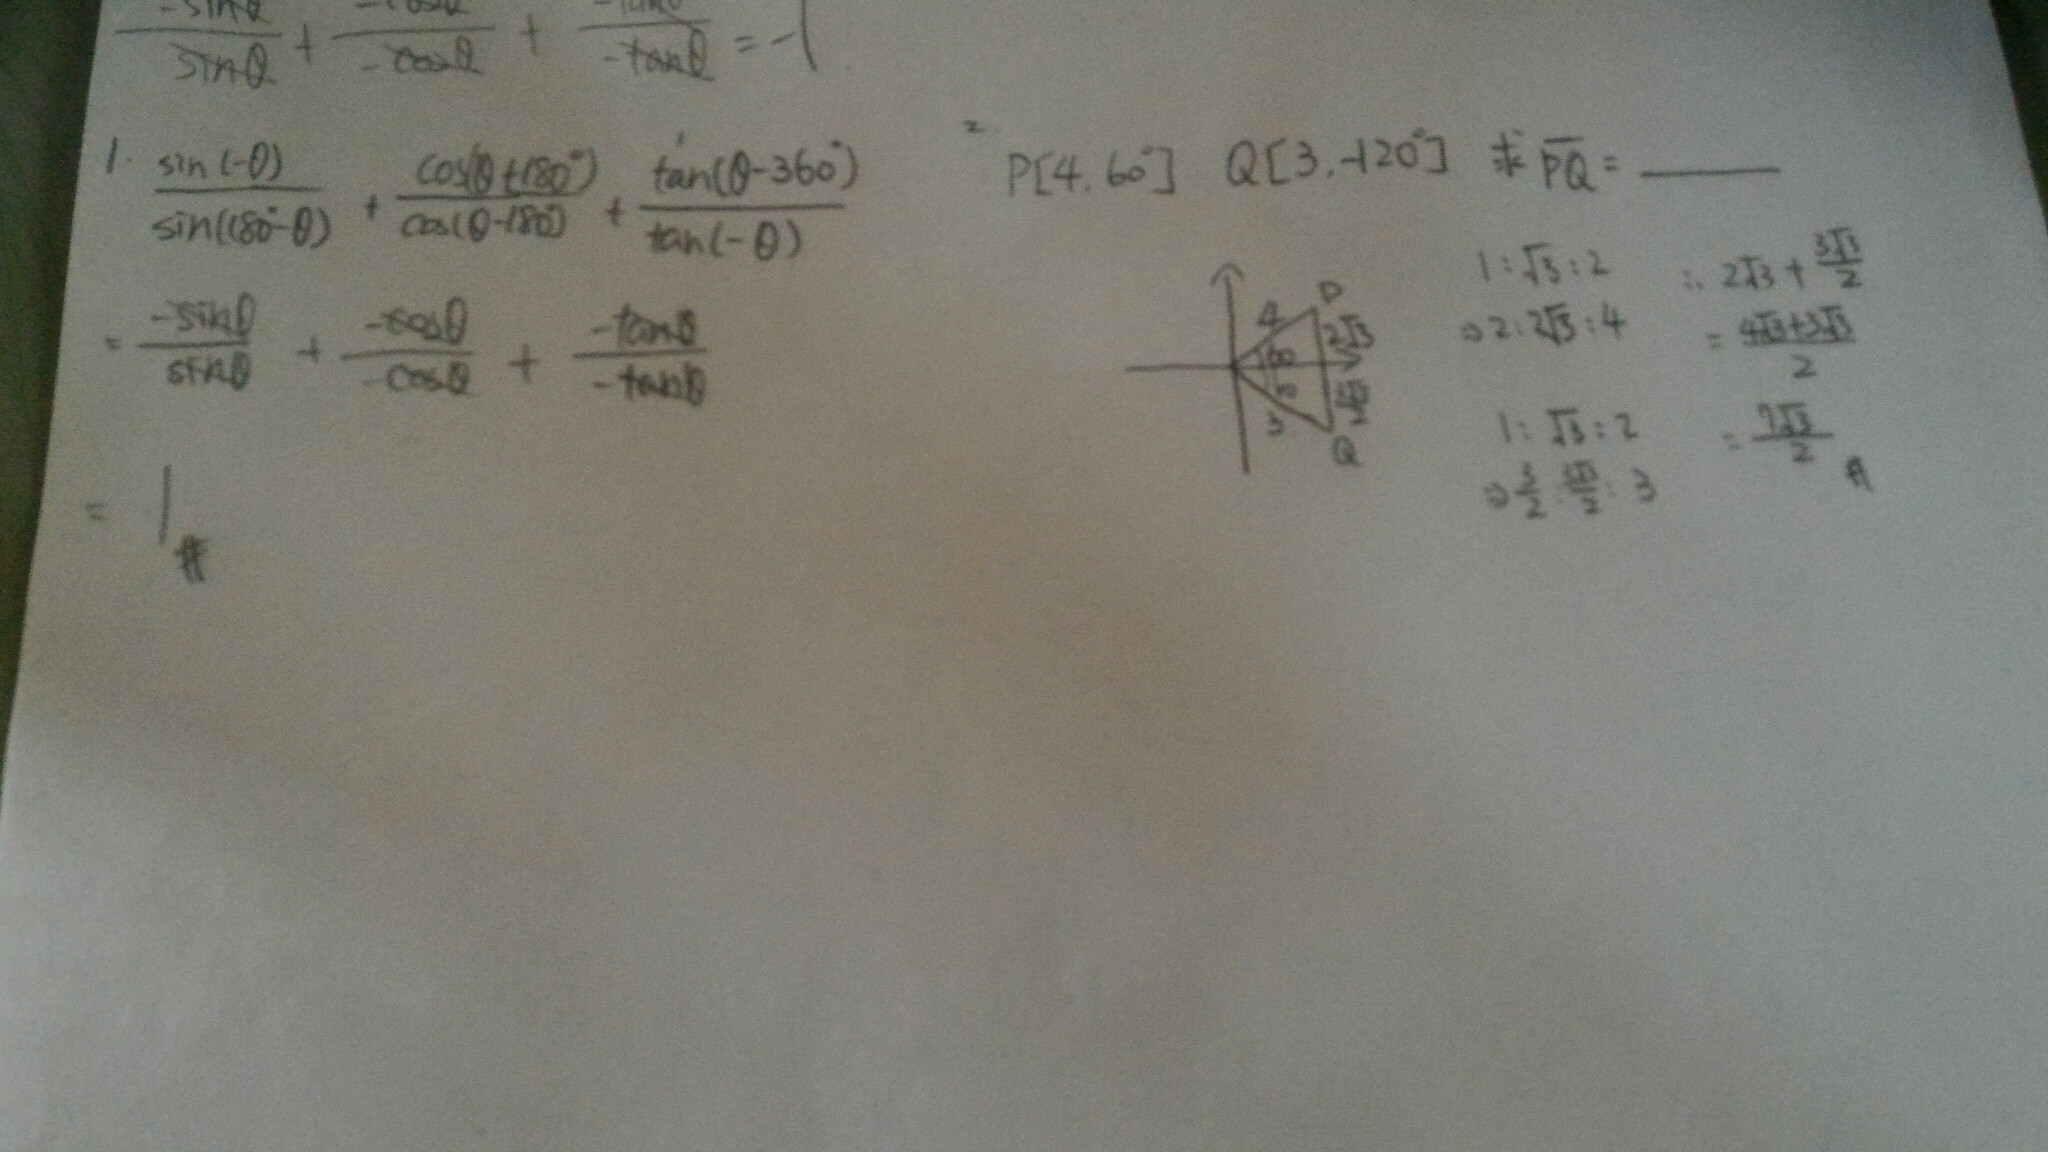 -sinθ/sinθ + -cosθ/-cosθ + -tanθ/-tanθ = -1
1. sin(-θ)/sin(180°-θ) + cos(θ+180°)/cos(θ-180°) + tan(θ-360°)/tan(-θ)
= -sinθ/sinθ + -cosθ/-cosθ + -tanθ/-tanθ
= 1 #
2. P[4, 60°] Q[3, -120°] 求 PQ = ____
4 P 2√3 60
3 Q 3√3/2
1:√3:2
⇒ 2:2√3:4
1:√3:2
⇒ 3/2:3√3/2:3
∴ 2√3 + 3√3/2
= 4√3+3√3/2
= 7√3/2 #